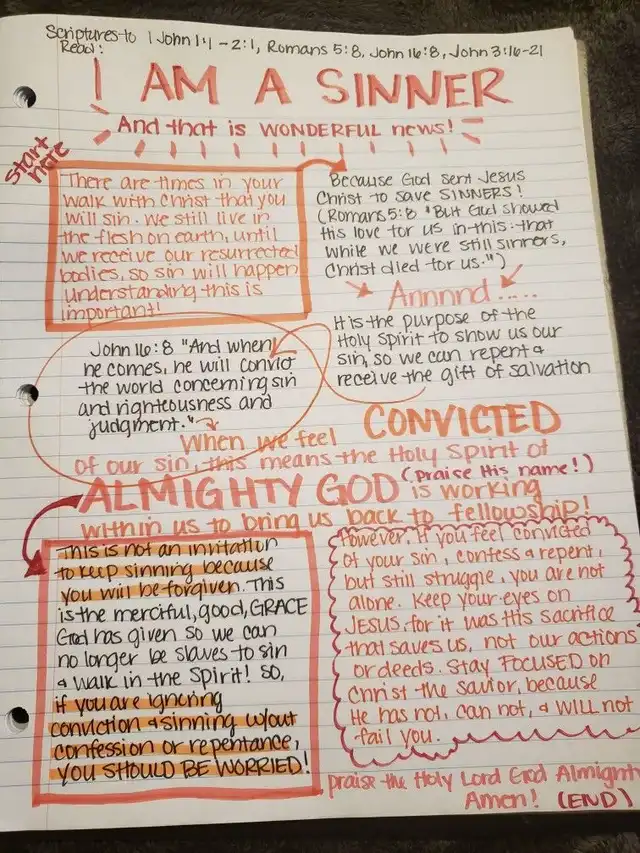 Scriptures to 1 John 1:1 - 2:1, Romans 5:8, John 16:8, John 3:16-21
Read:
I AM A SINNER
And that is WONDERFUL news!
start
here
There are times in your
walk with Christ that you
will sin. We still live in
the flesh on earth, until
we receive our resurrected
bodies, so sin will happen
understanding this is
important!
Because God sent Jesus
Christ to save SINNERS!
(Romans 5:8 "But God showed
His love for us in this: that
while we were still sinners,
Christ died for us.")
Annnnd.....
It is the purpose of the
Holy Spirit to show us our
sin, so we can repent &
receive the gift of salvation
John 16:8 "And when
he comes, he will convict
the world concerning sin
and righteousness and
judgment."
When we feel CONVICTED
of our sin, this means the Holy Spirit of
ALMIGHTY GOD (praise His name!)
is working
within us to bring us back to fellowship!
This is not an invitation
to keep sinning because
you will be forgiven. This
is the merciful, good, GRACE
God has given so we can
no longer be slaves to sin
& walk in the Spirit! So,
if you are ignoring
conviction & sinning w/out
confession or repentance,
you SHOULD BE WORRIED!
However, if you feel convicted
of your sin, confess & repent,
but still struggle, you are not
alone. Keep your eyes on
JESUS, for it was His sacrifice
that saves us, not our actions
or deeds. Stay FOCUSED on
Christ the savior, because
He has not, can not, & WILL not
fail you.
praise the Holy Lord God Almighty
Amen! (END)